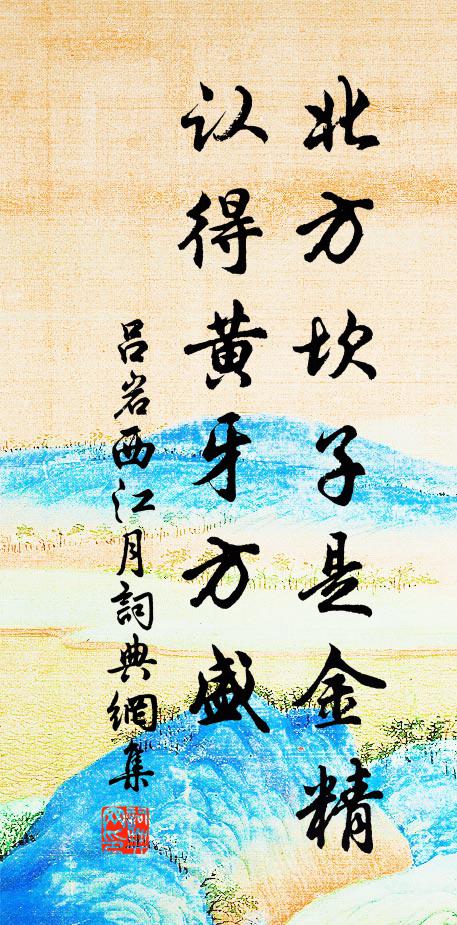 北方坎子是金精
认得黄牙方盛
吕岩西江月詞典網集